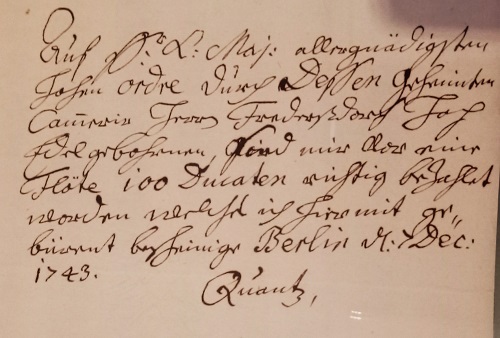 Auf Sr. K: Maj: allergnädigsten
hohen ordre durch Dessen Geheimten
Cammerir Herrn Frederßdorf Hoch
Edelgebohrenen, sind mir vor eine
Flöte 100 Ducaten richtig bezahlet
worden welches ich hiermit ge„
bürent bescheinige Berlin d: 7 Dec:
1743.
Quantz,